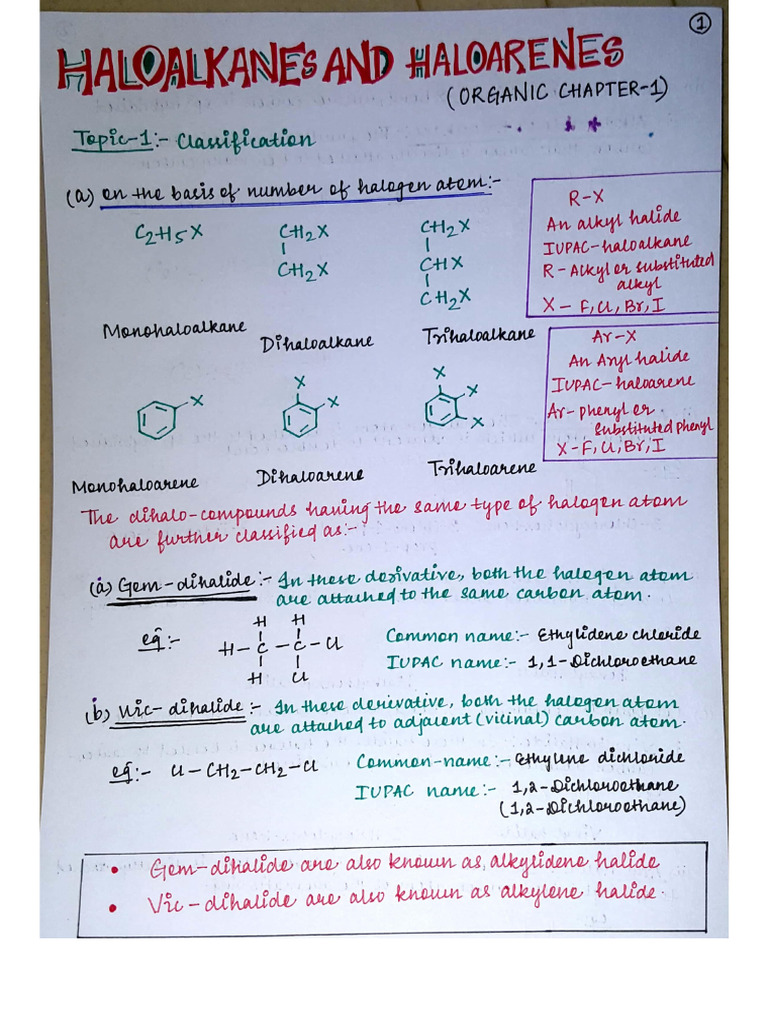 1
HALOALKANES AND HALOARENES
(ORGANIC CHAPTER-1)
Topic-1:- Classification
(a) on the basis of number of halogen atom:-
C2H5X
CH2X
CH2X
CH2X
CHX
CH2X
Monohaloalkane
Dihaloalkane
Trihaloalkane
R-X
An alkyl halide
IUPAC-haloalkane
R-Alkyl or substituted
alkyl
X- F, Cl, Br, I
X
X
X
X
X
X
Monohaloarene
Dihaloarene
Trihaloarene
Ar-X
An Aryl halide
IUPAC-haloarene
Ar-phenyl or
substituted phenyl
X-F, Cl, Br, I
The dihalo-compounds having the same type of halogen atom
are further classified as:-
(a) Gem-dihalide:- In these derivative, both the halogen atom
are attached to the same carbon atom.
eg:-
H H
H-C-C-Cl
H Cl
Common name:- Ethylidene chloride
IUPAC name:- 1,1-Dichloroethane
(b) Vic-dihalide:- In these derivative, both the halogen atom
are attached to adjacent (vicinal) carbon atom.
eg:- Cl-CH2-CH2-Cl
Common-name:- Ethylene dichloride
IUPAC name:- 1,2-Dichloroethane
(1,2-Dichloroethane)
• Gem-dihalide are also known as, alkylidene halide
• Vic-dihalide are also known as alkylene halide.